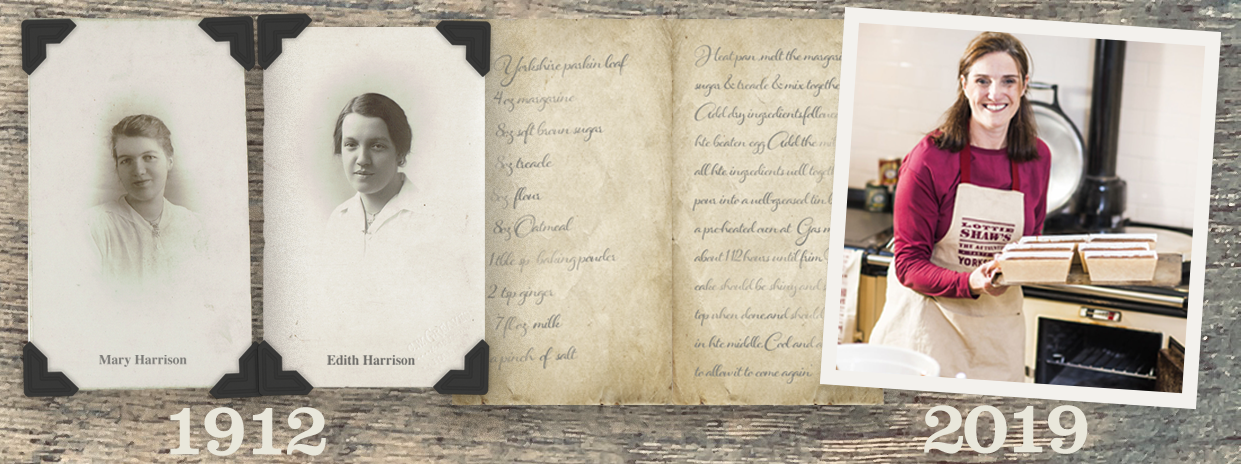 Mary Harrison
Edith Harrison
1912
Yorkshire parkin loaf
4oz margarine
8oz soft brown sugar
8oz treacle
8oz flour
8oz Oatmeal
1 tble sp baking powder
2 tsp ginger
7fl oz milk
a pinch of salt
Heat pan, melt the margar
sugar & treacle & mix togethe
Add dry ingredients follow
hte beaten egg Add the m
all hte ingredients well togeth
pour into a well greased tin
a preheated oven at Gas
about 1 1/2 hours until firm
cake should be shiny and
top when done and should
in hte middle. Cool and
to allow it to come again.
LOTTIE
SHAW'S
THE AUTHENTIC
YORK
2019